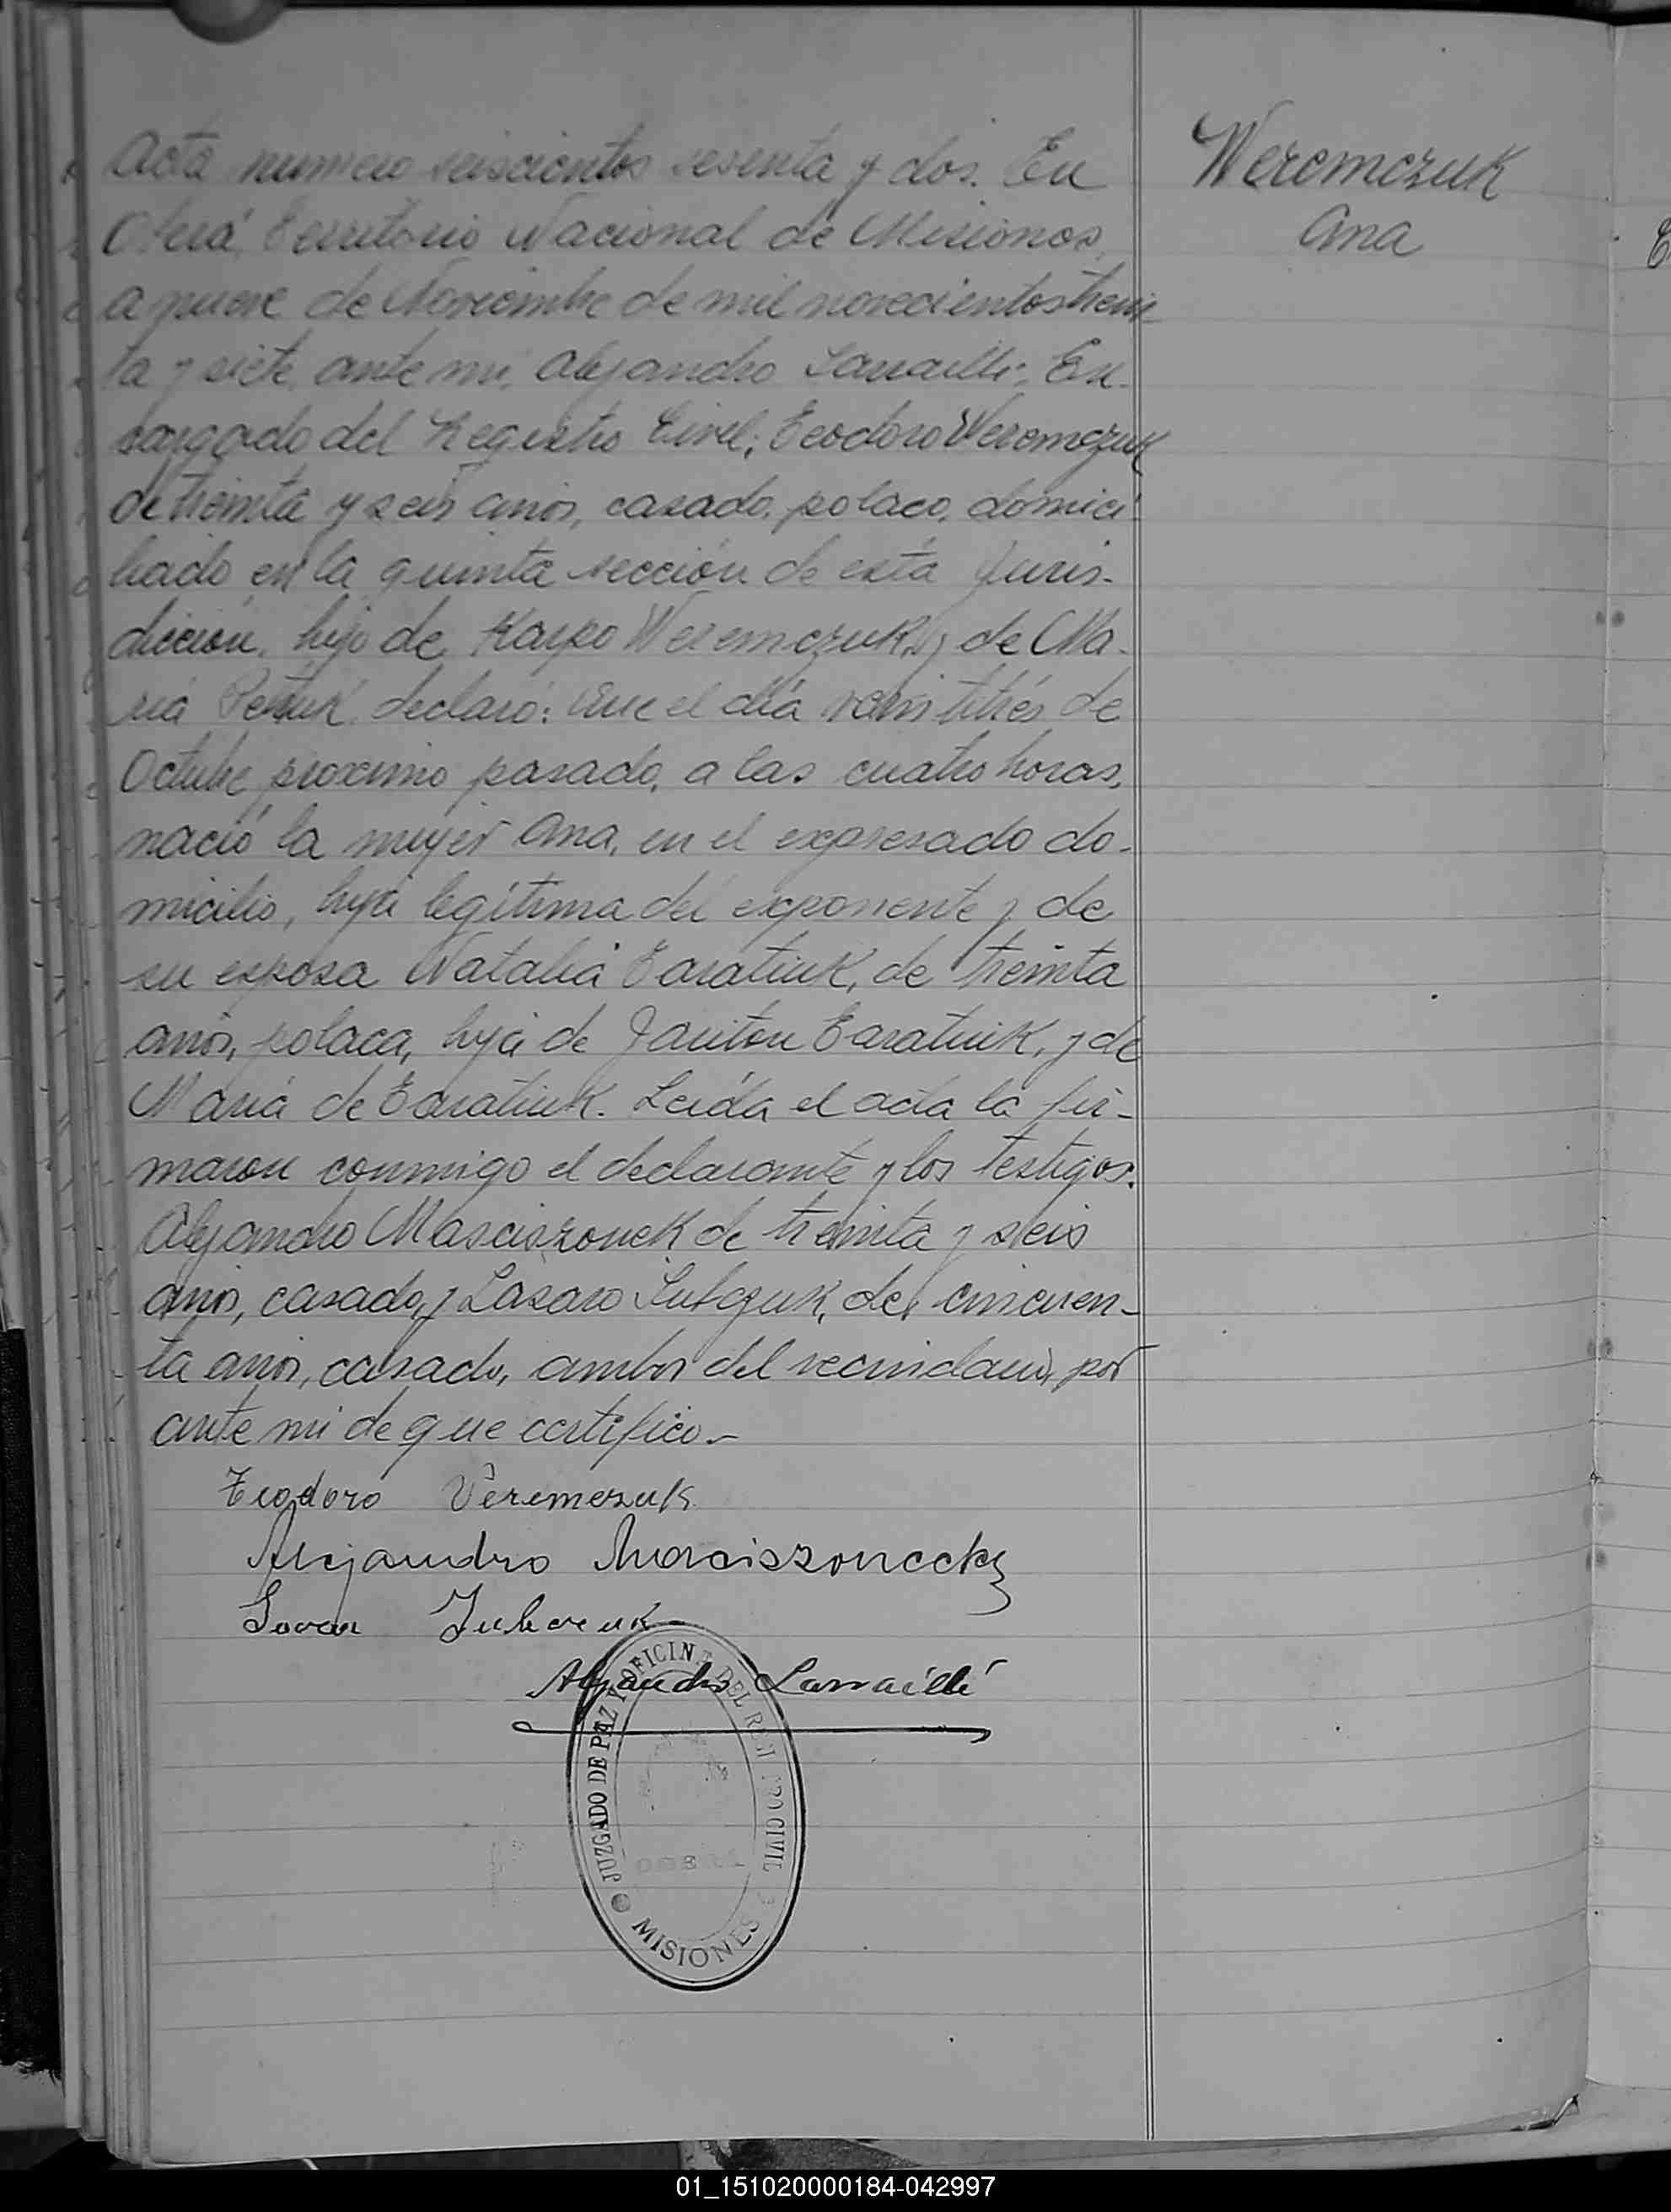 Acta numero seiscientos sesenta y dos. En
Oberá Territorio Nacional de Misiones,
a nueve de Noviembre de mil novecientos trein
ta y siete, ante mi, Alejandro Larraillé, En-
cargado del Registro Civil, Teodoro Weremczuk
de treinta y seis años, casado, polaco, domici-
liado en la quinta sección de esta Juris-
dicción, hijo de Karpo Weremczuk, y de Ma-
ria declaró: Que el día veintitrés de
Octubre proximo pasado, a las cuatro horas,
nació la mujer Ana, en el expresado do-
micilio, hija legítima del exponente y de
su esposa Natalia Taratiuk, de treinta
años, polaca, hija de Taratiuk, y de
Maria de Taratiuk. Leída el acta la fir-
maron conmigo el declarante y los testigos:
Alejandro Masciszonek de treinta y seis
años, casado, y Lasaro de cincuen-
ta años, casado, ambos del vecindario, por
ante mi de que certifico.-
Teodoro Veremczuk
Alejandro
Alejandro Larraillé
JUZGADO DE PAZ Y OFICINA DEL REGISTRO CIVIL
OBERÁ
MISIONES
Weremczuk
Ana
01_151020000184-042997